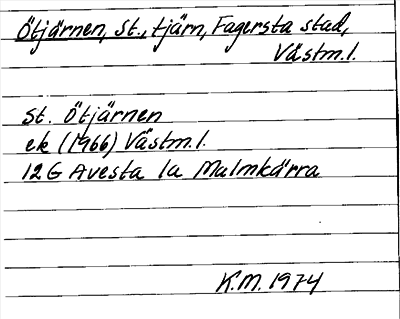 Ötjärnen, St., tjärn, Fagersta stad,
Västm.l.
St. Ötjärnen
ek (1966) Västm.l.
12G Avesta 1a Malmkärra
K.M. 1974